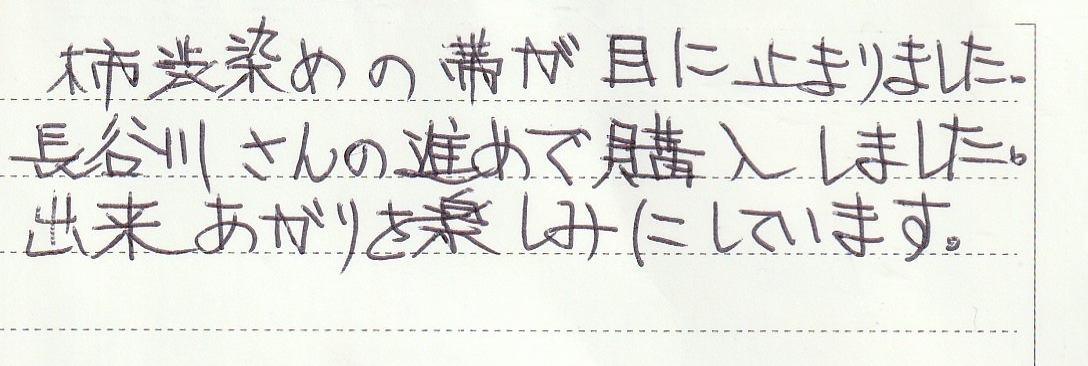 柿渋染めの帯が目に止まりました。
長谷川さんの進めで購入しました。
出来あがりを楽しみにしています。